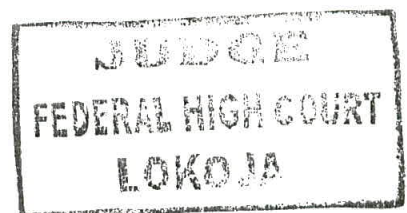 JUDGE
FEDERAL HIGH COURT
LOKOJA